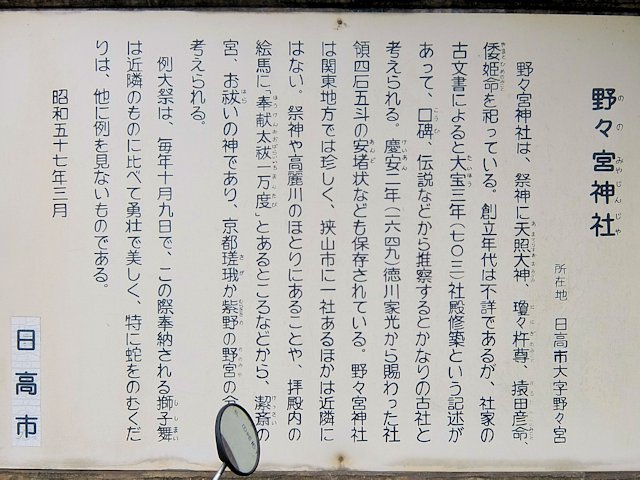 野々宮神社
ののみやじんじゃ
所在地 日高市大字野々宮
野々宮神社は、祭神に天照大神、瓊々杵尊、猿田彦命、
倭姫命を祀っている。創立年代は不詳であるが、社家の
古文書によると大宝三年(七〇三)社殿修築という記述が
あって、口碑、伝説などから推察するとかなりの古社と
考えられる。慶安二年(一六四九)徳川家光から賜わった社
領四石五斗の安堵状なども保存されている。野々宮神社
は関東地方では珍しく、挟山市に一社あるほかは近隣に
はない。祭神や高麗川のほとりにあることや、拝殿内の
絵馬に「奉献太祓一万度」とあるところなどから、潔斎の
宮、お祓いの神であり、京都瑳珴か紫野の野宮の
考えられる。
例大祭は、毎年十月九日で、この際奉納される獅子舞
は近隣のものに比べて勇壮で美しく、特に蛇をのむくだ
りは、他に例を見ないものである。
昭和五十七年三月
日高市